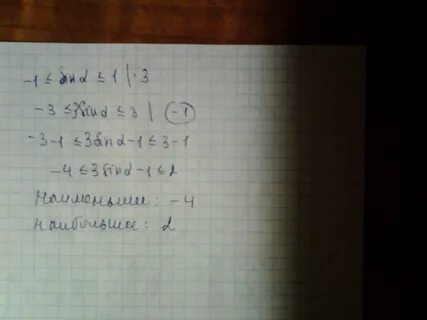 -1 ≤ sin α ≤ 1 | · 3
-3 ≤ 3 sin α ≤ 3 | -1
-3-1 ≤ 3 sin α -1 ≤ 3-1
-4 ≤ 3 sin α -1 ≤ 2
Наименьшее: -4
Наибольшее: 2